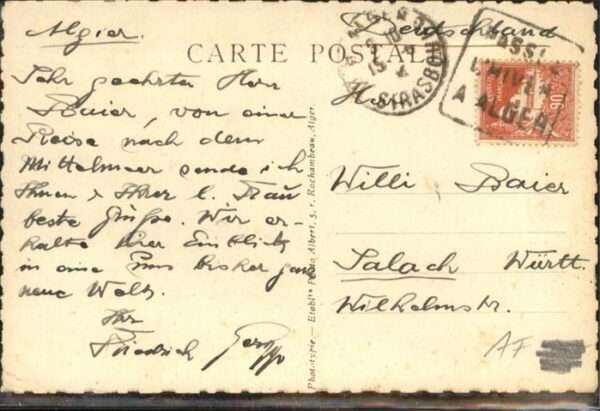 Algier.
CARTE POSTALE
Deutschland
ALGER
STRASBOURG
PASSEZ
L'HIVER
A ALGER
90
Sehr geehrter Herr
Baier, von einer
Reise nach dem
Mittelmeer sende ich
Ihnen & Ihrer l. Frau
beste Grüße. Wir er-
halte hier Einblick
in eine uns bisher ganz
neue Welt.
Ihr
Friedrich
Herrn
Willi Baier
Salach Württ.
Wilhelmstr.
Phototypie — Etablts Photo Albert, 5, r. Rochambeau, Alger.
AF